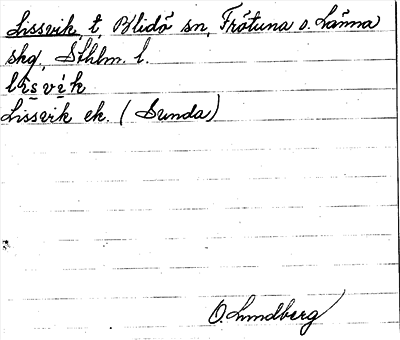 Lissvik, t, Blidö sn, Frötuna o. Länna
skg, Sthlm. l.
lisvik
Lissvik ek. (Sunda)
O. Lundberg